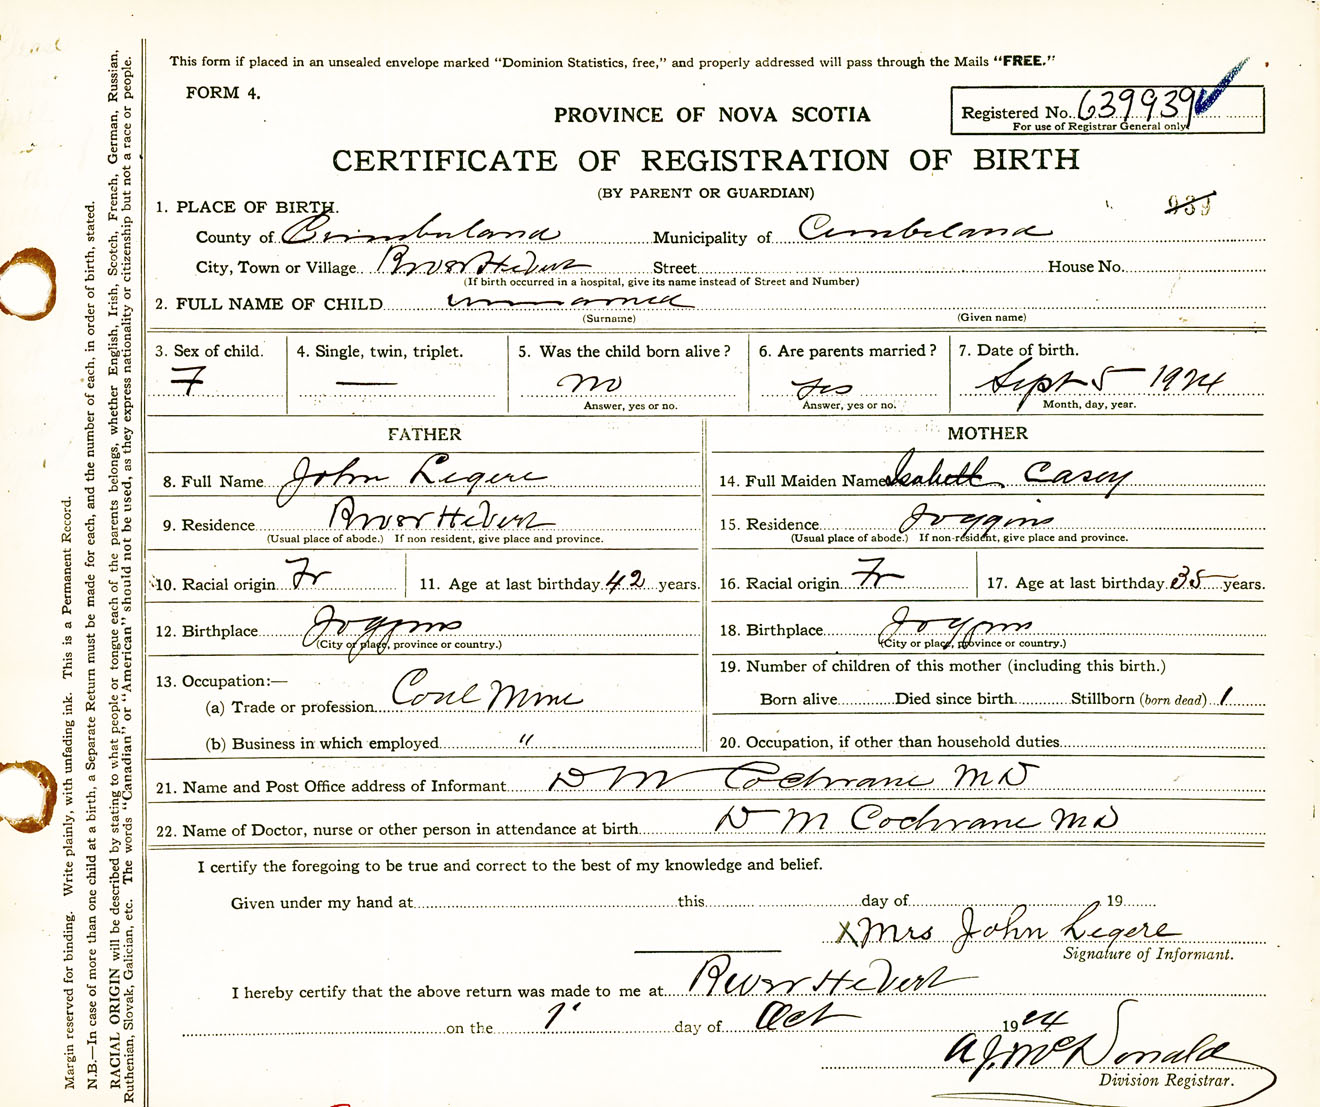 This form if placed in an unsealed envelope marked “Dominion Statistics, free,” and properly addressed will pass through the Mails “FREE.”
FORM 4.
PROVINCE OF NOVA SCOTIA
Registered No. 639939
For use of Registrar General only
CERTIFICATE OF REGISTRATION OF BIRTH
(BY PARENT OR GUARDIAN)
939
1. PLACE OF BIRTH.
County of Cumberland Municipality of Cumberland
City, Town or Village River Hebert Street House No.
(If birth occurred in a hospital, give its name instead of Street and Number)
2. FULL NAME OF CHILD unnamed
(Surname) (Given name)
3. Sex of child. 4. Single, twin, triplet. 5. Was the child born alive? 6. Are parents married? 7. Date of birth.
F — no yes Sept 5 1924
Answer, yes or no. Answer, yes or no. Month, day, year.
FATHER MOTHER
8. Full Name John Legere 14. Full Maiden Name Isabell Casey
9. Residence River Hebert 15. Residence Joggins
(Usual place of abode.) If non resident, give place and province. (Usual place of abode.) If non-resident, give place and province.
10. Racial origin Fr 11. Age at last birthday 42 years. 16. Racial origin Fr 17. Age at last birthday 35 years.
12. Birthplace Joggins 18. Birthplace Joggins
(City or place, province or country.) (City or place, province or country.)
19. Number of children of this mother (including this birth.)
13. Occupation:—
(a) Trade or profession Coal Mine Born alive Died since birth Stillborn (born dead) 1
(b) Business in which employed " 20. Occupation, if other than household duties
21. Name and Post Office address of Informant D M Cochrane MD
22. Name of Doctor, nurse or other person in attendance at birth D M Cochrane MD
I certify the foregoing to be true and correct to the best of my knowledge and belief.
Given under my hand at this day of 19
X Mrs John Legere
Signature of Informant.
I hereby certify that the above return was made to me at River Hebert
on the 1 day of Oct 1924
A J McDonald
Division Registrar.
Margin reserved for binding. Write plainly, with unfading ink. This is a Permanent Record.
N.B.—In case of more than one child at a birth, a Separate Return must be made for each, and the number of each, in order of birth, stated.
RACIAL ORIGIN will be described by stating to what people or tongue each of the parents belongs, whether English, Irish, Scotch, French, German, Russian,
Ruthenian, Slovak, Galician, etc. The words “Canadian” or “American” should not be used, as they express nationality or citizenship but not a race or people.